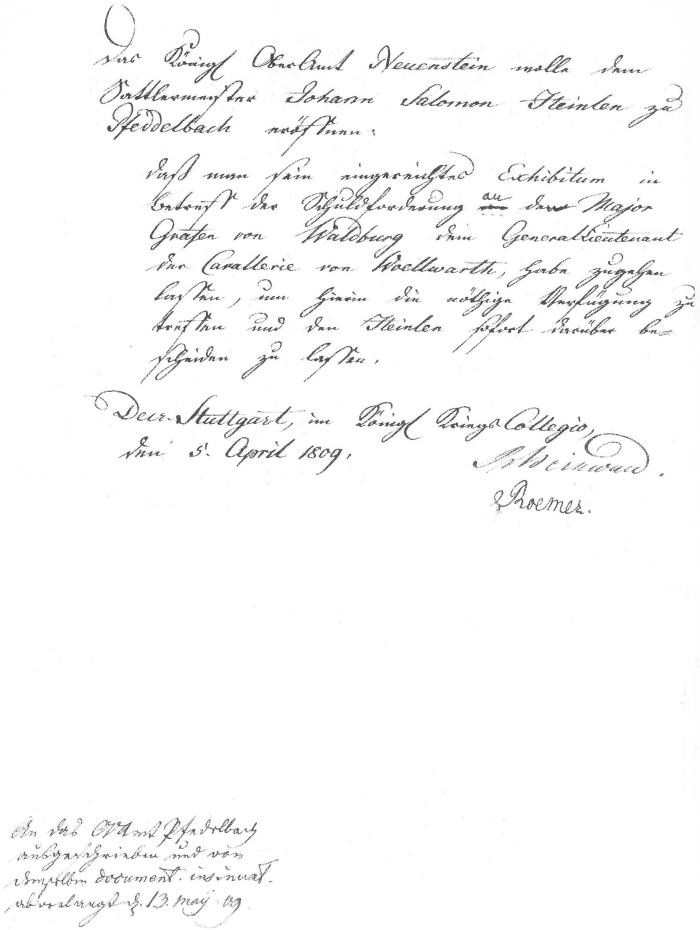 Das Königl OberAmt Neuenstein wolle dem
Sattlermeister Johann Salomon Heinlen zu
Pfeddelbach eröffnen:
daß man sein eingereichtes Exhibitum in
Betreff der Schuldforderung an den Major
Grafen von Waldburg dem GeneralLieutenant
der Cavallerie von Woellwarth, habe zugehen
lassen, um hierin die nöthige Verfügung zu
treffen und den Heinlen sofort darüber be=
scheiden zu lassen.
Decr. Stuttgart, im Königl KriegsCollegio,
den 5. April 1809.
Roemer.
An das Amt Pfedelbach
ausgeschrieben und von
demselben document. insinuat.
d. 13. may 09.